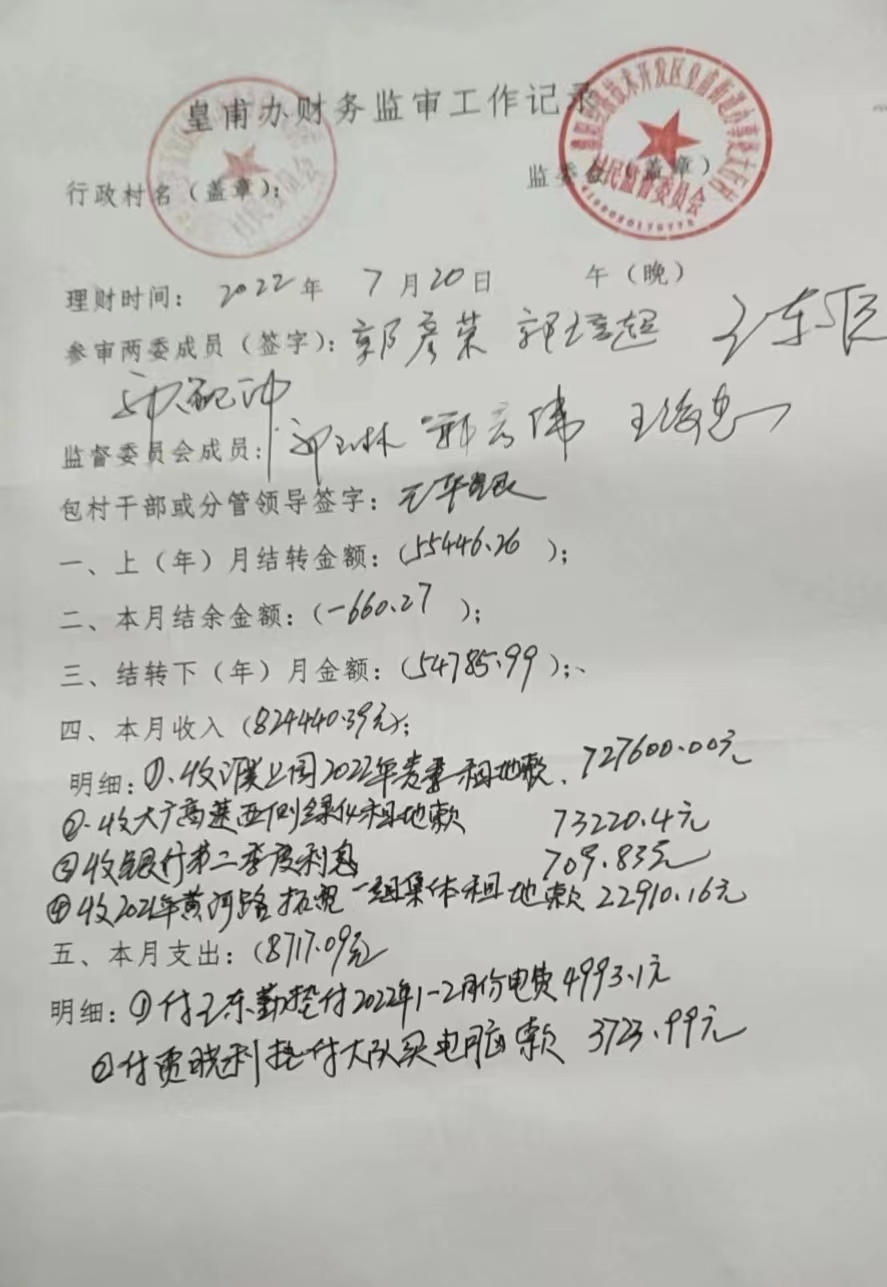 皇甫办财务监审工作记录
行政村名（盖章）：
监委会（盖章）
村民委员会
技术开发区皇甫街道办事处
村民监督委员会
理财时间： 2022 年 7 月 20 日 午（晚）
参审两委成员（签字）：郭彦荣
监督委员会成员：
包村干部或分管领导签字：
一、上（年）月结转金额：(55446.26 )；
二、本月结余金额：(-660.27 )；
三、结转下（年）月金额：(54785.99 )；
四、本月收入 (824440.39元)；
明细：①.收 2022年 租地款. 727600.00元
②.收大广高速西侧绿化租地款 73220.4元
③收银行第二季度利息 709.83元
④收2021年黄河路拓宽一组集体租地款 22910.16元
五、本月支出：(8717.09元
明细：①付王东勤垫付2022年1-2月份电费4993.1元
②付贾晓利垫付大队买电脑款 3723.99元